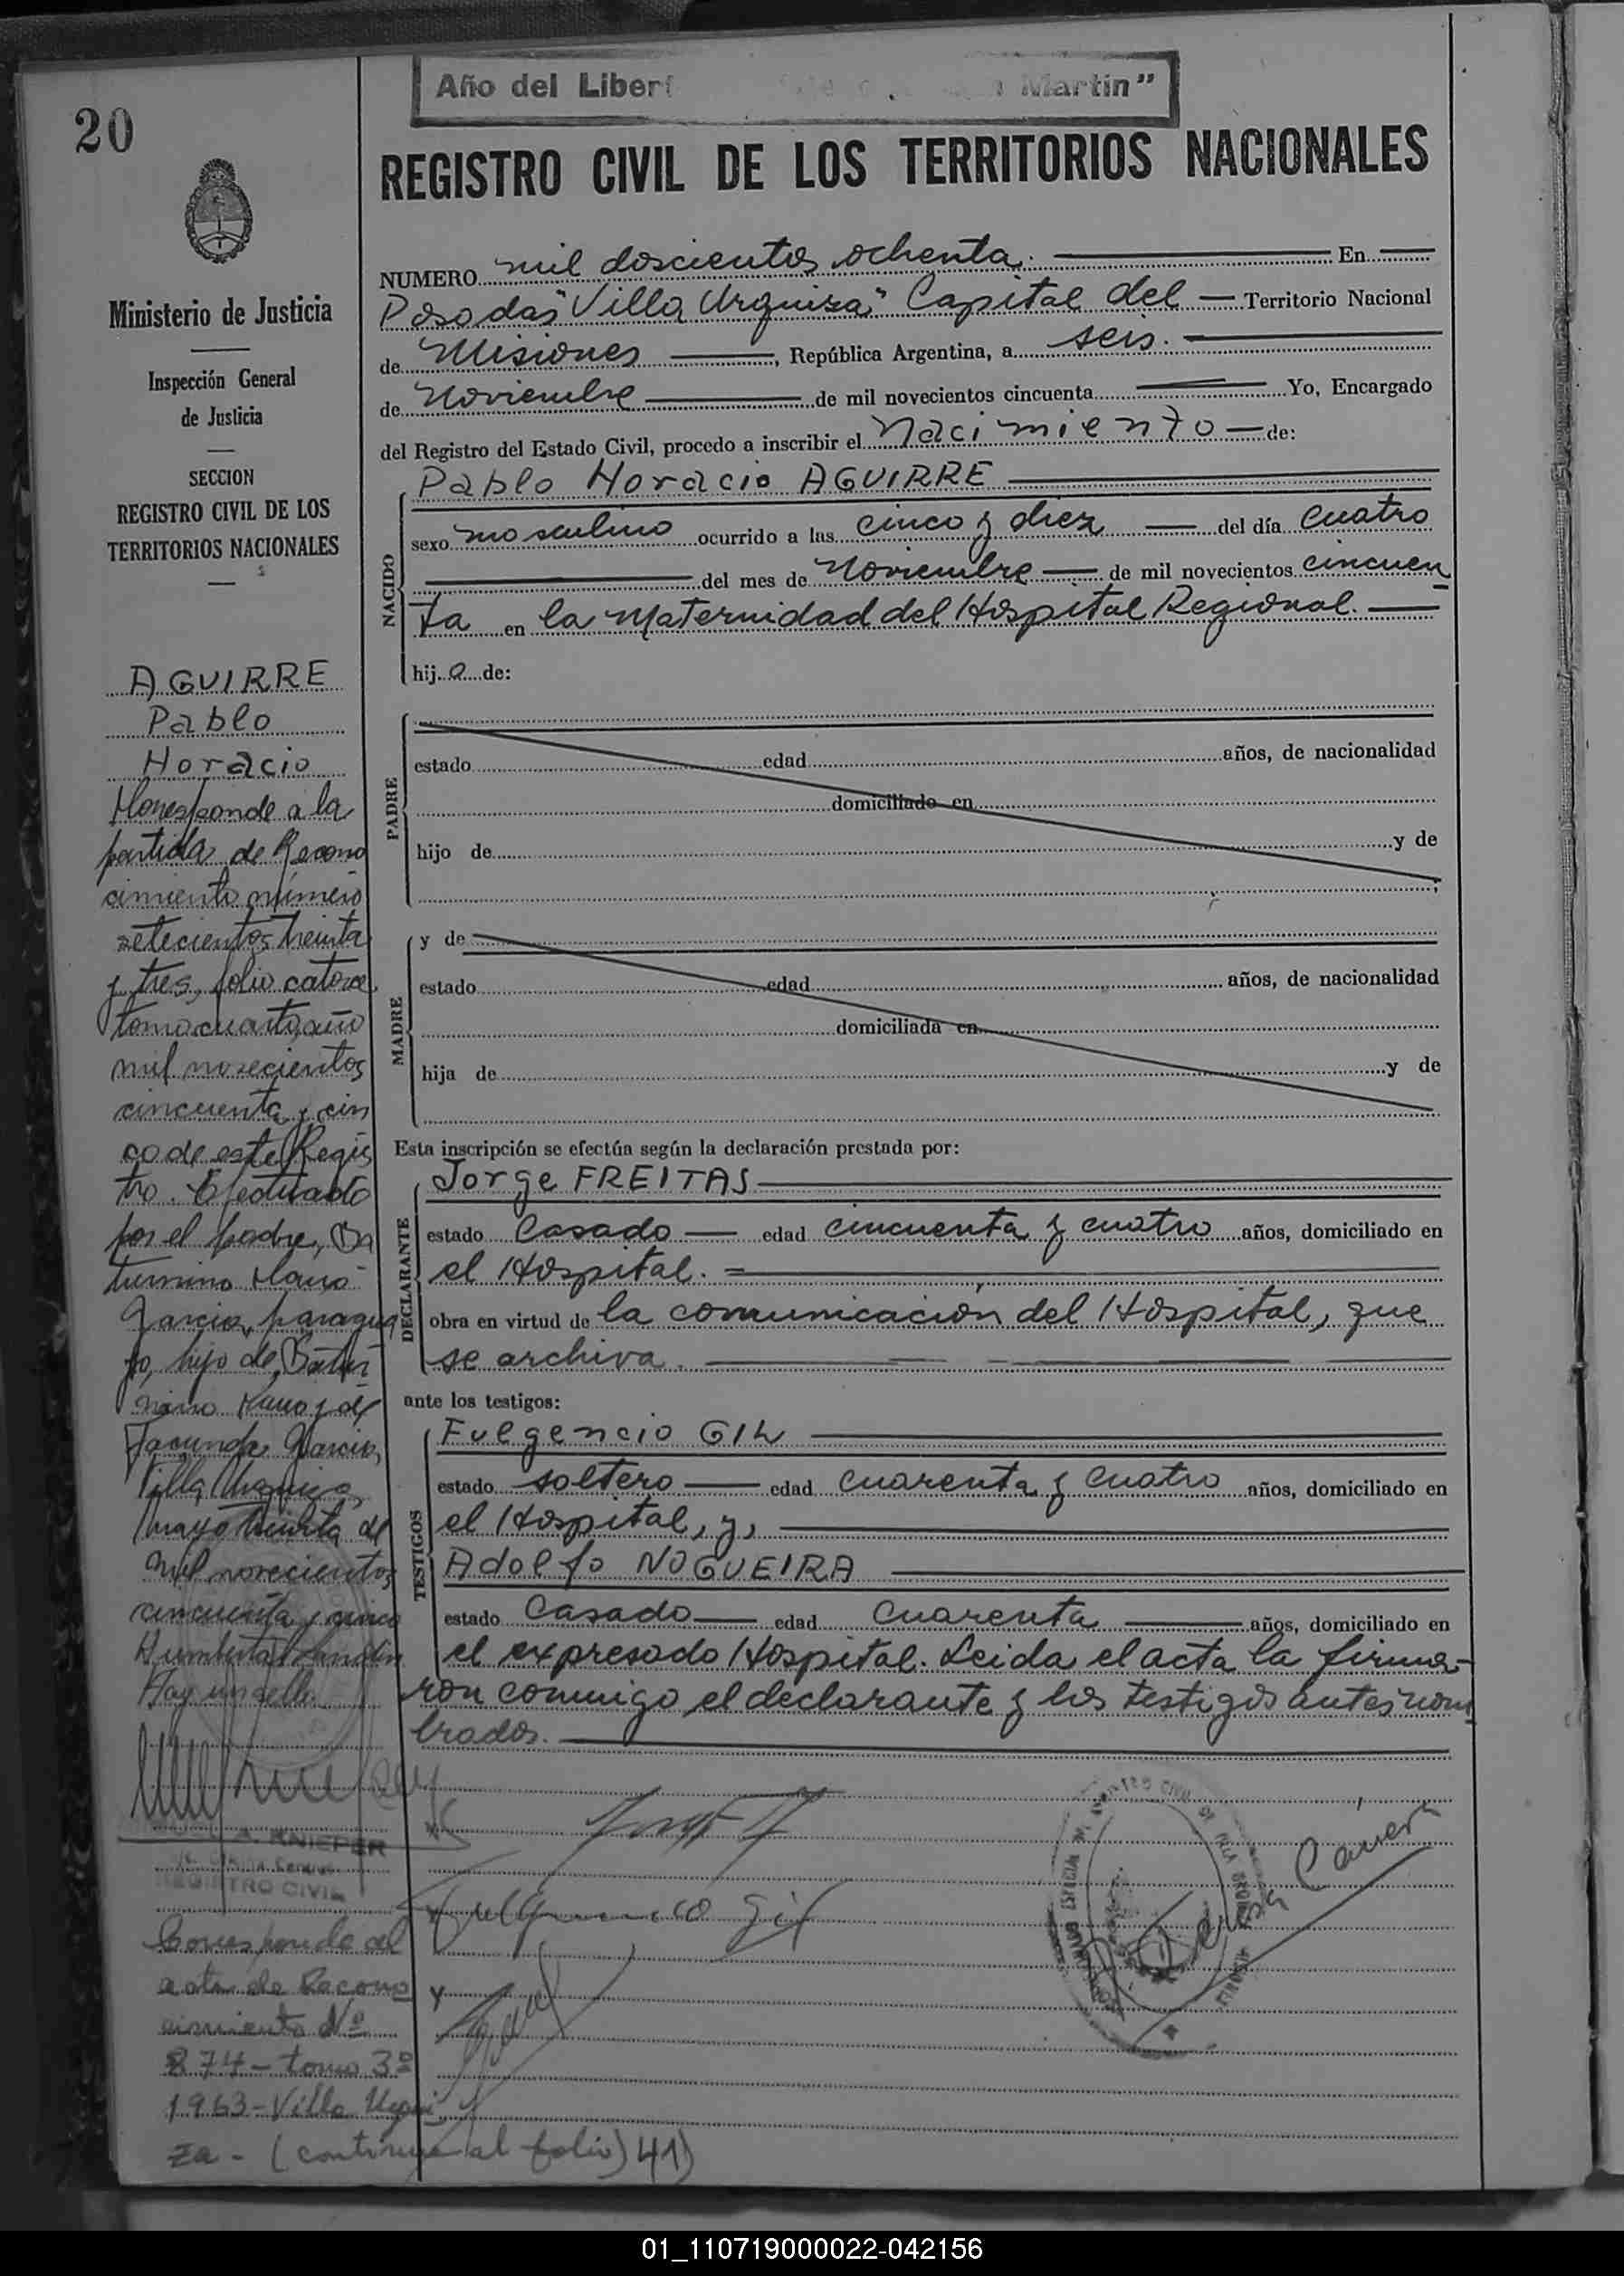 Año del Libert Martin"
20
REGISTRO CIVIL DE LOS TERRITORIOS NACIONALES
Ministerio de Justicia
Inspección General
de Justicia
SECCION
REGISTRO CIVIL DE LOS
TERRITORIOS NACIONALES
NUMERO mil doscientos ochenta. En
Posadas "Villa Urquiza" Capital del Territorio Nacional
de Misiones, República Argentina, a seis.
de Noviembre de mil novecientos cincuenta Yo, Encargado
del Registro del Estado Civil, procedo a inscribir el Nacimiento de:
NACIDO
Pablo Horacio AGUIRRE
sexo masculino ocurrido a las cinco y diez del día cuatro
del mes de Noviembre de mil novecientos cincuen
ta en la Maternidad del Hospital Regional.
hij o de:
PADRE
estado edad años, de nacionalidad
domiciliado en
hijo de y de
MADRE
y de
estado edad años, de nacionalidad
domiciliada en
hija de y de
Esta inscripción se efectúa según la declaración prestada por:
DECLARANTE
Jorge FREITAS
estado Casado edad cincuenta y cuatro años, domiciliado en
el Hospital.
obra en virtud de la comunicación del Hospital, que
se archiva.
ante los testigos:
TESTIGOS
Fulgencio GIL
estado soltero edad cuarenta y cuatro años, domiciliado en
el Hospital, y,
Adolfo NOGUEIRA
estado Casado edad Cuarenta años, domiciliado en
el expresado Hospital. Leida el acta la firma-
ron conmigo el declarante y los testigos antes nom
brados.
AGUIRRE
Pablo
Horacio
a la
partida de Recono
cimiento número
setecientos treinta
y tres, folio catorce
tomo cuarto, año
mil novecientos
cincuenta y cin
co de este Regis
tro. Efectuado
por el padre,
Garcia, paragua
yo, hijo de
y de
Facunda Garcia,
Villa Urquiza,
mayo treinta de
mil novecientos
cincuenta y cinco
Hay un sello
A. KNIEPER
REGISTRO CIVIL
Fulgencio Gil
Corresponde al
acta de Recono
cimiento Nº
874 - tomo 3º
1963 - Villa Urqui
za - (continua al folio) 41)
01_110719000022-042156